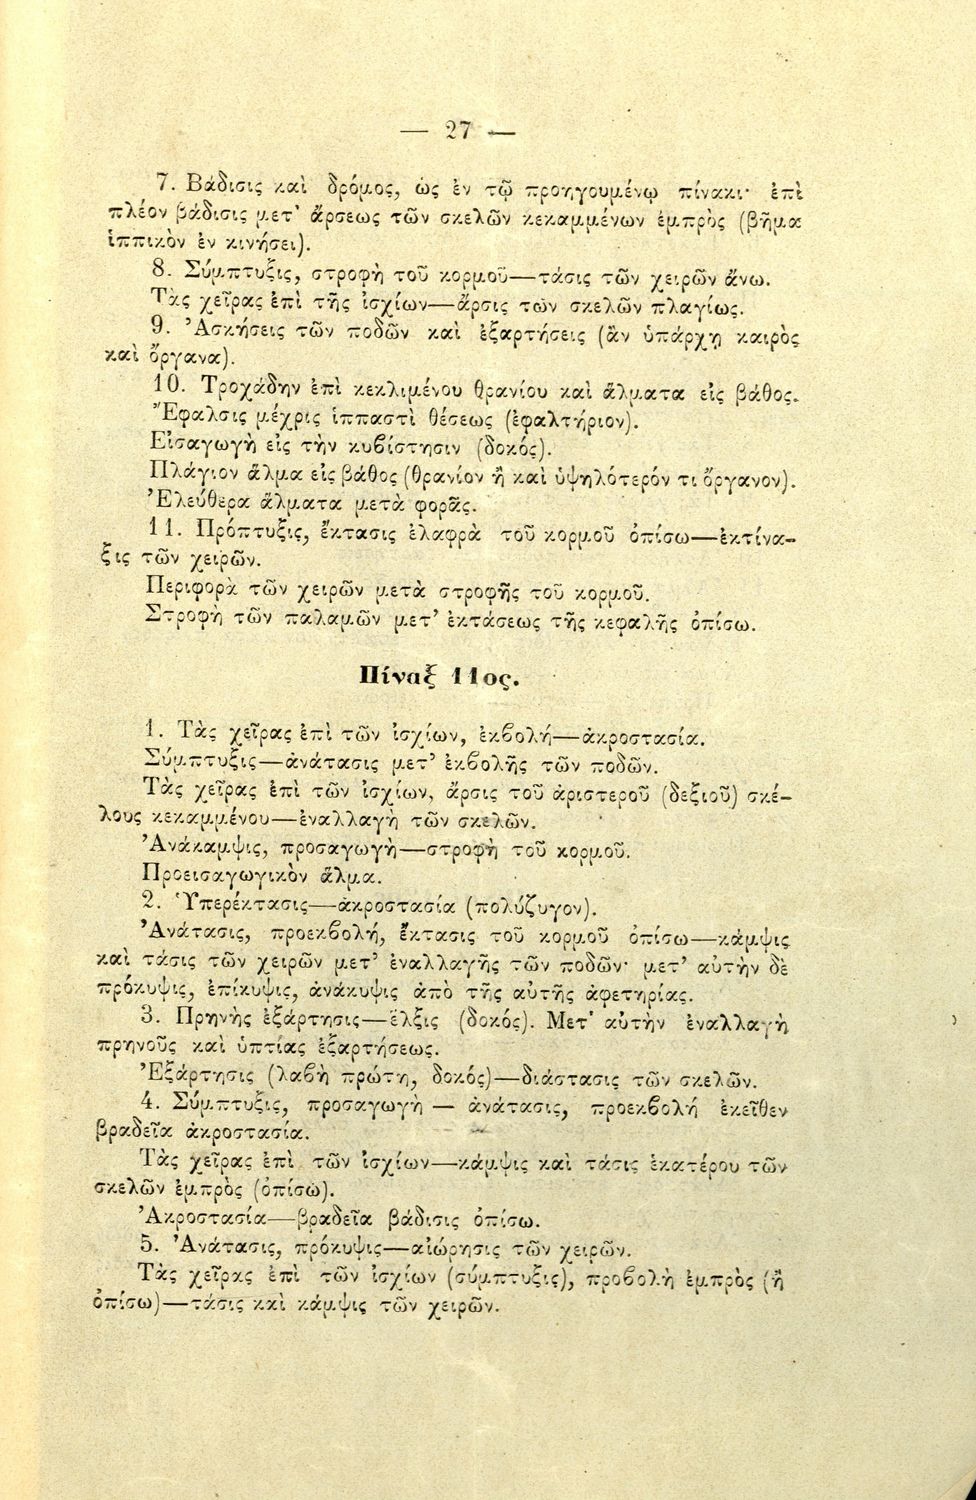 — 27 —
7. Βάδισις καὶ δρόμος, ὡς ἐν τῷ προηγουμένῳ πίνακι· ἐπὶ
πλέον βάδισις μετ' ἄρσεως τῶν σκελῶν κεκαμμένων ἐμπρὸς (βῆμα
ἱππικὸν ἐν κινήσει).
8. Σύμπτυξις, στροφὴ τοῦ κορμοῦ—τάσις τῶν χειρῶν ἄνω.
Τὰς χεῖρας ἐπὶ τῆς ἰσχίων—ἄρσις τῶν σκελῶν πλαγίως.
9. Ἀσκήσεις τῶν ποδῶν καὶ ἐξαρτήσεις (ἂν ὑπάρχῃ καιρὸς
καὶ ὄργανα).
10. Τροχάδην ἐπὶ κεκλιμένου θρανίου καὶ ἅλματα εἰς βάθος.
Ἔφαλσις μέχρις ἱππαστὶ θέσεως (ἐφαλτήριον).
Εἰσαγωγὴ εἰς τὴν κυβίστησιν (δοκός).
Πλάγιον ἅλμα εἰς βάθος (θρανίον ἢ καὶ ὑψηλότερόν τι ὄργανον).
Ἐλεύθερα ἅλματα μετὰ φορᾶς.
11. Πρόπτυξις, ἔκτασις ἐλαφρὰ τοῦ κορμοῦ ὀπίσω—ἐκτίνα-
ξις τῶν χειρῶν.
Περιφορὰ τῶν χειρῶν μετὰ στροφῆς τοῦ κορμοῦ.
Στροφὴ τῶν παλαμῶν μετ' ἐκτάσεως τῆς κεφαλῆς ὀπίσω.
Πίναξ 11ος.
1. Τὰς χεῖρας ἐπὶ τῶν ἰσχίων, ἐκβολή—ἀκροστασία.
Σύμπτυξις—ἀνάτασις μετ' ἐκβολῆς τῶν ποδῶν.
Τὰς χεῖρας ἐπὶ τῶν ἰσχίων, ἄρσις τοῦ ἀριστεροῦ (δεξιοῦ) σκέ-
λους κεκαμμένου—ἐναλλαγὴ τῶν σκελῶν.
Ἀνάκαμψις, προσαγωγὴ—στροφὴ τοῦ κορμοῦ.
Προεισαγωγικὸν ἅλμα.
2. Ὑπερέκτασις—ἀκροστασία (πολύζυγον).
Ἀνάτασις, προεκβολή, ἔκτασις τοῦ κορμοῦ ὀπίσω—κάμψις
καὶ τάσις τῶν χειρῶν μετ' ἐναλλαγῆς τῶν ποδῶν· μετ' αὐτὴν δὲ
πρόκυψις, ἐπίκυψις, ἀνάκυψις ἀπὸ τῆς αὐτῆς ἀφετηρίας.
3. Πρηνὴς ἐξάρτησις—ἕλξις (δοκός). Μετ' αὐτὴν ἐναλλαγὴ
πρηνοῦς καὶ ὑπτίας ἐξαρτήσεως.
Ἐξάρτησις (λαβὴ πρώτη, δοκός)—διάστασις τῶν σκελῶν.
4. Σύμπτυξις, προσαγωγὴ — ἀνάτασις, προεκβολή ἐκεῖθεν
βραδεῖα ἀκροστασία.
Τὰς χεῖρας ἐπὶ τῶν ἰσχίων—κάμψις καὶ τάσις ἑκατέρου τῶν
σκελῶν ἐμπρὸς (ὀπίσω).
Ἀκροστασία—βραδεῖα βάδισις ὀπίσω.
5. Ἀνάτασις, πρόκυψις—αἰώρησις τῶν χειρῶν.
Τὰς χεῖρας ἐπὶ τῶν ἰσχίων (σύμπτυξις), προβολὴ ἐμπρὸς (ἢ
ὀπίσω)—τάσις καὶ κάμψις τῶν χειρῶν.